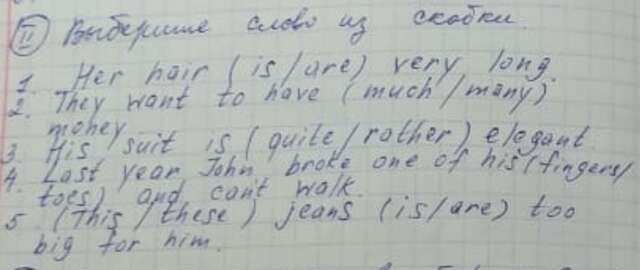 II Выберите слово из скобки.
1. Her hair (is/are) very long.
2. They want to have (much/many)
money.
3. His suit is (quite/rather) elegant.
4. Last year John broke one of his (fingers/
toes) and can't walk.
5. (This/these) jeans (is/are) too
big for him.